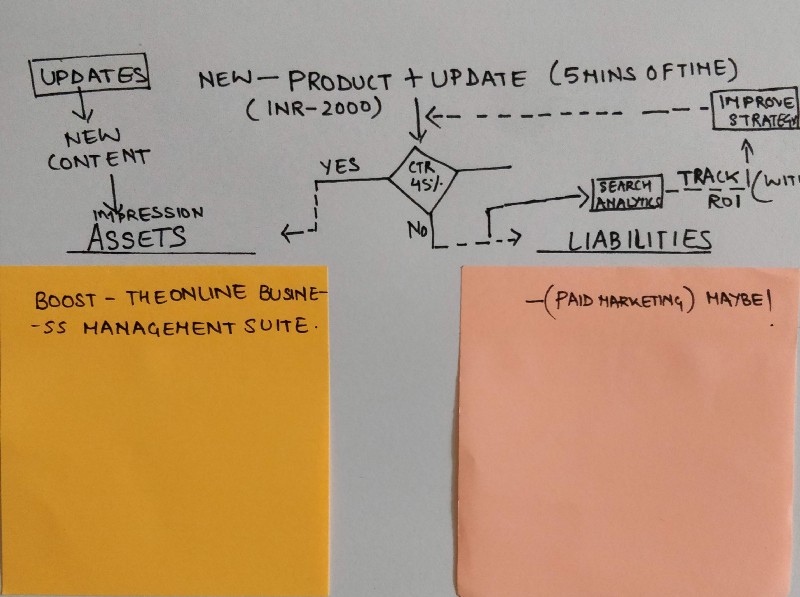 UPDATES
NEW
CONTENT
IMPRESSION
ASSETS
NEW — PRODUCT + UPDATE (5 MINS OF TIME)
(INR-2000)
IMPROVE
STRATEGY
YES
CTR
45%
NO
SEARCH
ANALYTICS
TRACK
ROI
LIABILITIES
BOOST – THE ONLINE BUSINE-
-SS MANAGEMENT SUITE.
—(PAID MARKETING) MAYBE!